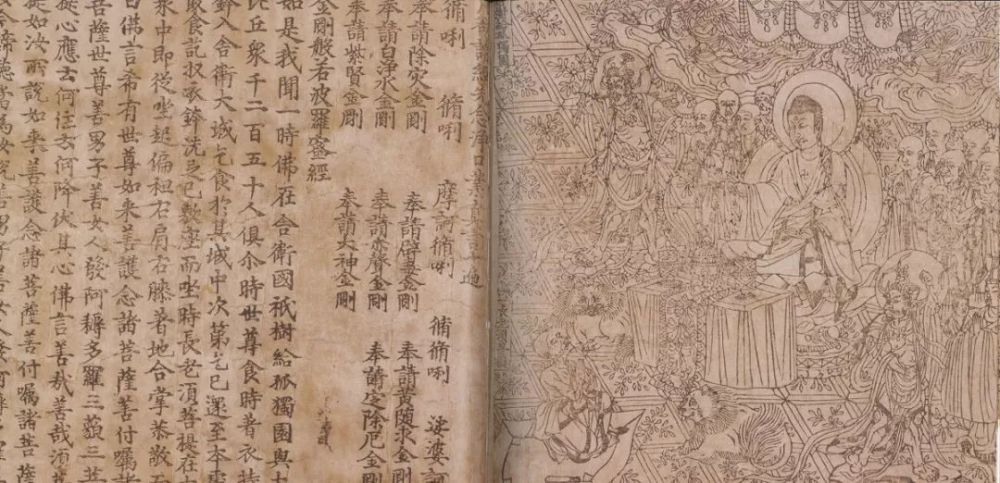 口業
脩唎 摩訶脩唎 脩脩唎 娑婆訶
奉請除灾金剛 奉請辟毒金剛 奉請黄随求金剛
奉請白净水金剛 奉請赤聲金剛 奉請定除厄金剛
奉請紫賢金剛 奉請大神金剛
金剛般若波羅蜜經
如是我聞一時佛在舍衛國祇樹給孤獨園與
比丘衆千二百五十人俱尒時世尊食時著衣持
鉢入舍衛大城乞食於其城中次第乞已還至本處
飯食訖収衣鉢洗足已敷座而坐時長老湏菩提在
衆中即從坐起偏袒右肩右膝著地合掌恭敬
白佛言希有世尊如来善護念諸菩薩善付嘱諸
菩薩世尊善男子善女人發阿耨多羅三藐三
心應云何住云何降伏其心佛言善哉善哉湏
提如汝所說如来善護念諸菩薩善付嘱諸菩薩
諦聽當為汝說善男子善女人發阿耨